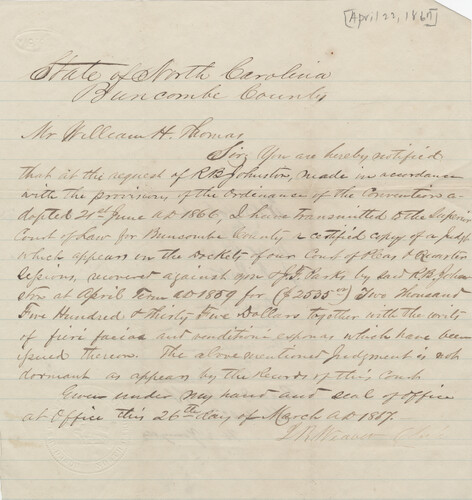 [April 22, 1867]
State of North Carolina
Buncombe County
Mr William H. Thomas
Sir, You are hereby notified
that at the request of R.B. Johnston, made in accordance
with the provisions of the Ordinance of the Convention a-
dopted 21st June AD 1866, I have transmitted to the Superior
Court of Law for Buncombe County a certified copy of a Judgt
which appears on the Dockets of our Court of Pleas & Quarter
Sessions, recovered against you & by said R.B. John-
ston at April Term AD 1859 for ($2535.00) Two Thousand
Five Hundred & Thirty Five Dollars together with the writs
of fieri facias and venditioni exponas which have been
issued thereon. The above mentioned Judgment is not
dormant as appears by the Records of this Court
Given under my hand and seal of office
at Office this 26th day of March AD 1867.
Weaver Clk